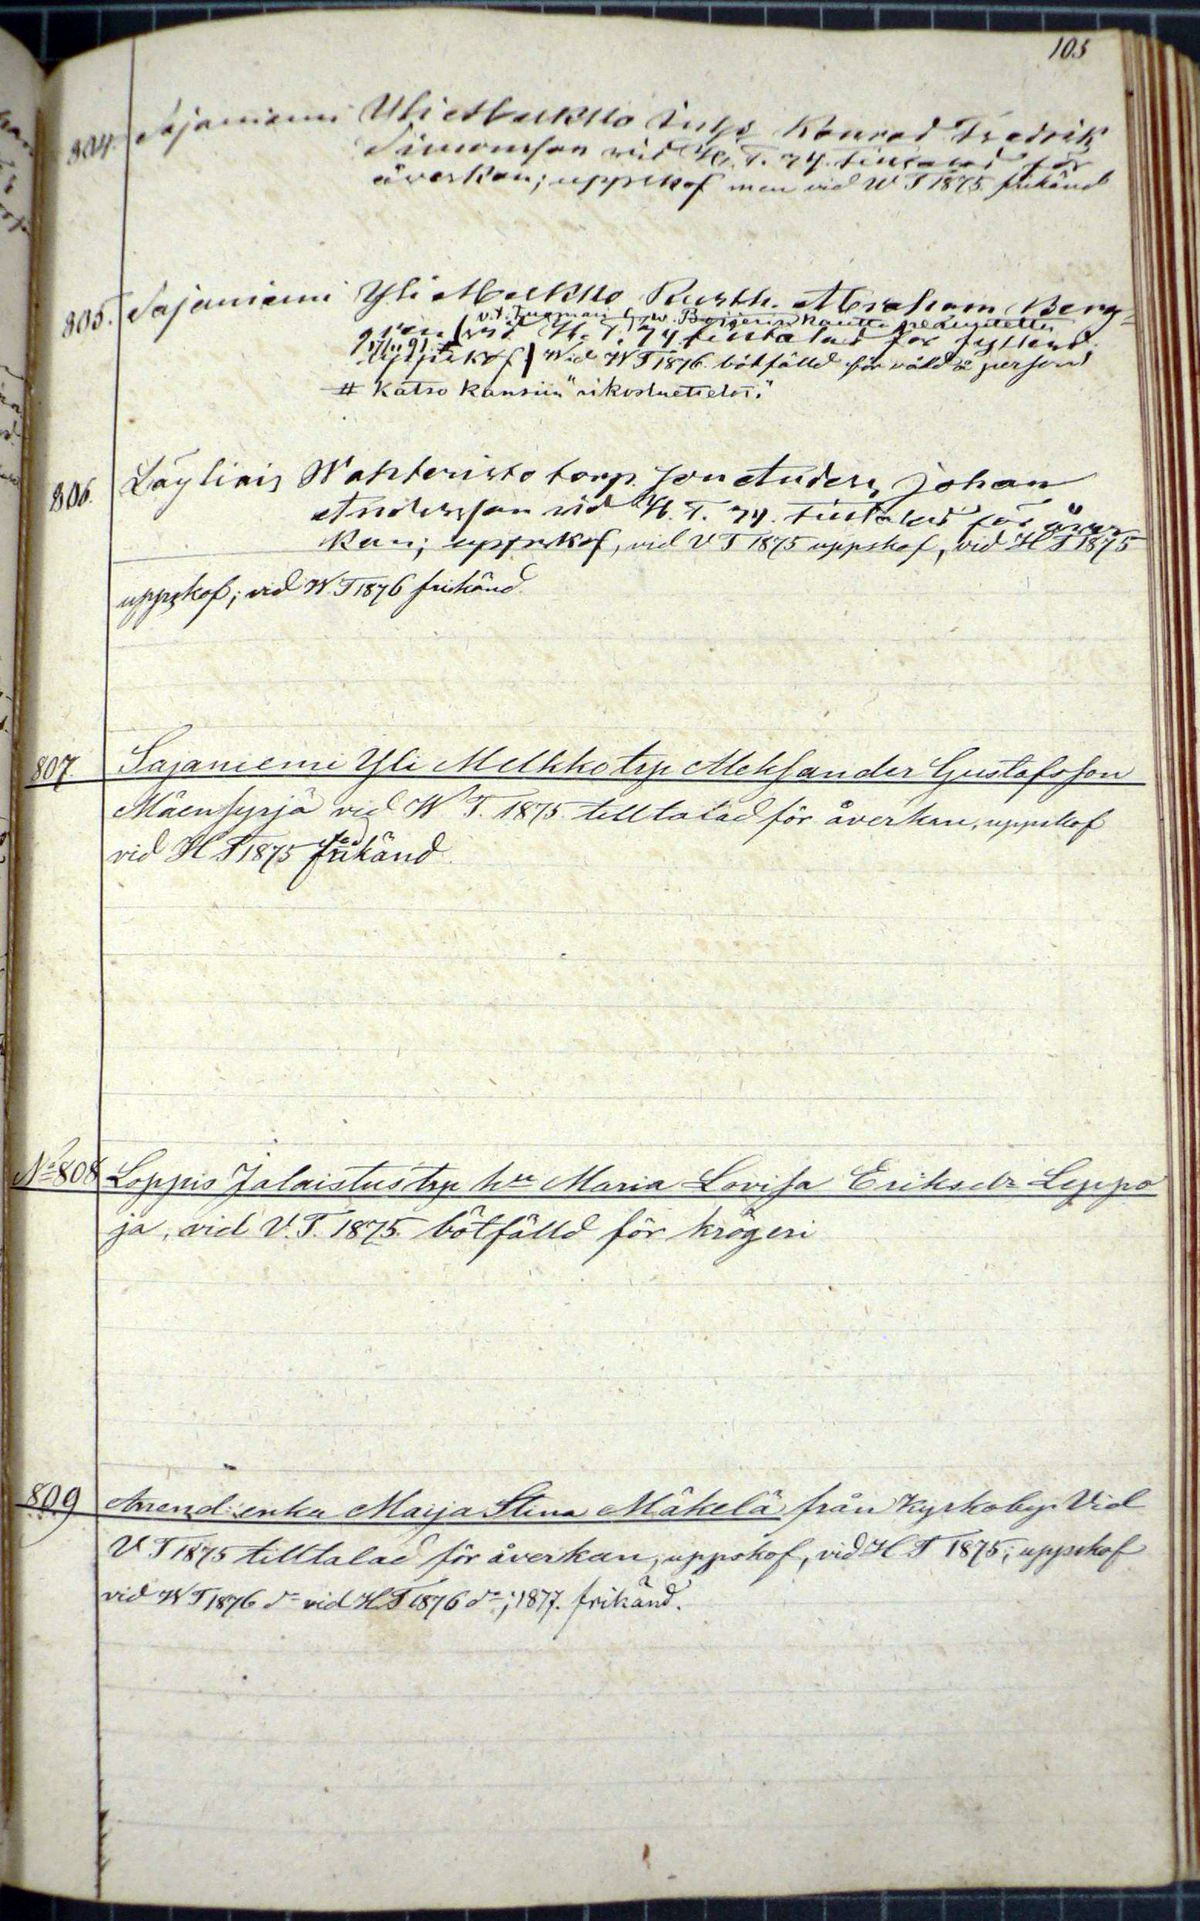 105
804. Sajaniemi Yli Melkko Inhs Konrad Fredrik
Simonsson vid H. T. 74. tilltalad för
åverkan; uppskof men vid W T 1875 frikänd
805. Sajaniemi Yli Melkko Rusth. Abraham Berg=
v.t. Tuomari kautta
gren (vid H. T. 74 tilltalad för fylleri
17/11 91. #
uppskof) Wid W T 1876 bötfälld för våld å person
# Katso kansiin "rikosluettelot."
806. Läyliäis Wahteristo torp. son Anders Johan
Andersson vid H. T. 74. tilltalad för åver
kan; uppskof, vid V T 1875 uppskof, vid H T 1875
uppskof; vid W T 1876 frikänd
807. Sajaniemi Yli Melkko trp Aleksander Gustafsson
Mäensyrjä vid W T. 1875 tilltalad för åverkan, uppskof
vid H T 1875 frikänd
No 808 Loppis Jalaistus trp hu Maria Lovisa Eriksdr Leppo
ja, vid V. T. 1875. bötfälld för krögeri
809 Arrend: enka Maija Stina Mäkelä från Kyrkoby. Vid
V T 1875 tilltalad för åverkan, uppskof, vid H T 1875; uppskof
vid W T 1876 do vid H T 1876 do; 1877. frikänd.